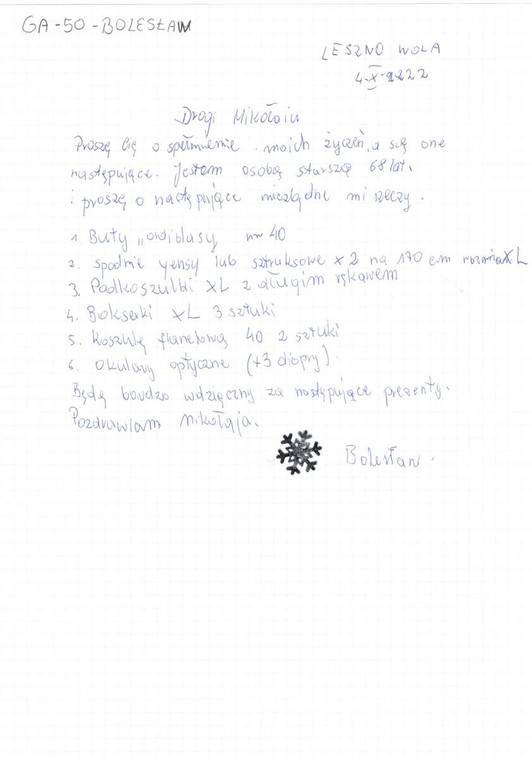 GA-50-BOLESŁAW
LESZNO WOLA
4-X-2222
Drogi Mikołaiu
Proszę Cię o spełmienie moich życzeń, a są one
następujące. Jestem osobą starszą 68 lat.
i proszę o następujące niezbędne mi rzeczy.
1 Buty "adidasy" nr 40
2. spodnie yensy lub sztruksowe x 2 na 170 cm rozmiar XL
3. Podkoszulki XL z długim rękawem
4. Bokserki XL 3 sztuki
5. Koszulę flanelową 40 2 sztuki
6. Okulary optyczne (+3 diopry)
Będę bardzo wdzięczny za następujące prezenty.
Pozdrawiam Mikołaja.
Bolesław.